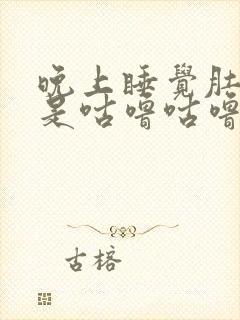 晚上睡覺肚
是咕嚕咕嚕
古榕